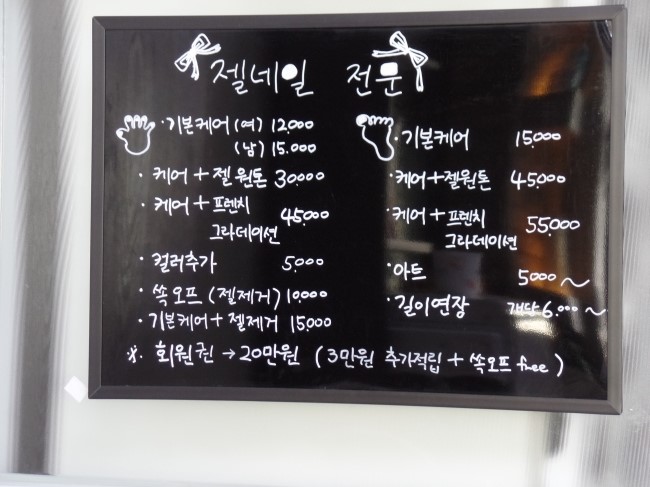 젤네일 전문
· 기본케어 (여) 12,000
(남) 15,000
· 케어 + 젤 원톤 30,000
· 케어 + 프렌치
그라데이션 45,000
· 컬러추가 5,000
· 쏙오프 (젤제거) 10,000
· 기본케어 + 젤제거 15,000
· 기본케어 15,000
· 케어 + 젤원톤 45,000
· 케어 + 프렌치
그라데이션 55,000
· 아트 5,000 ~
· 길이연장 개당 6,000 ~
※. 회원권 → 20만원 ( 3만원 추가적립 + 쏙오프 free )